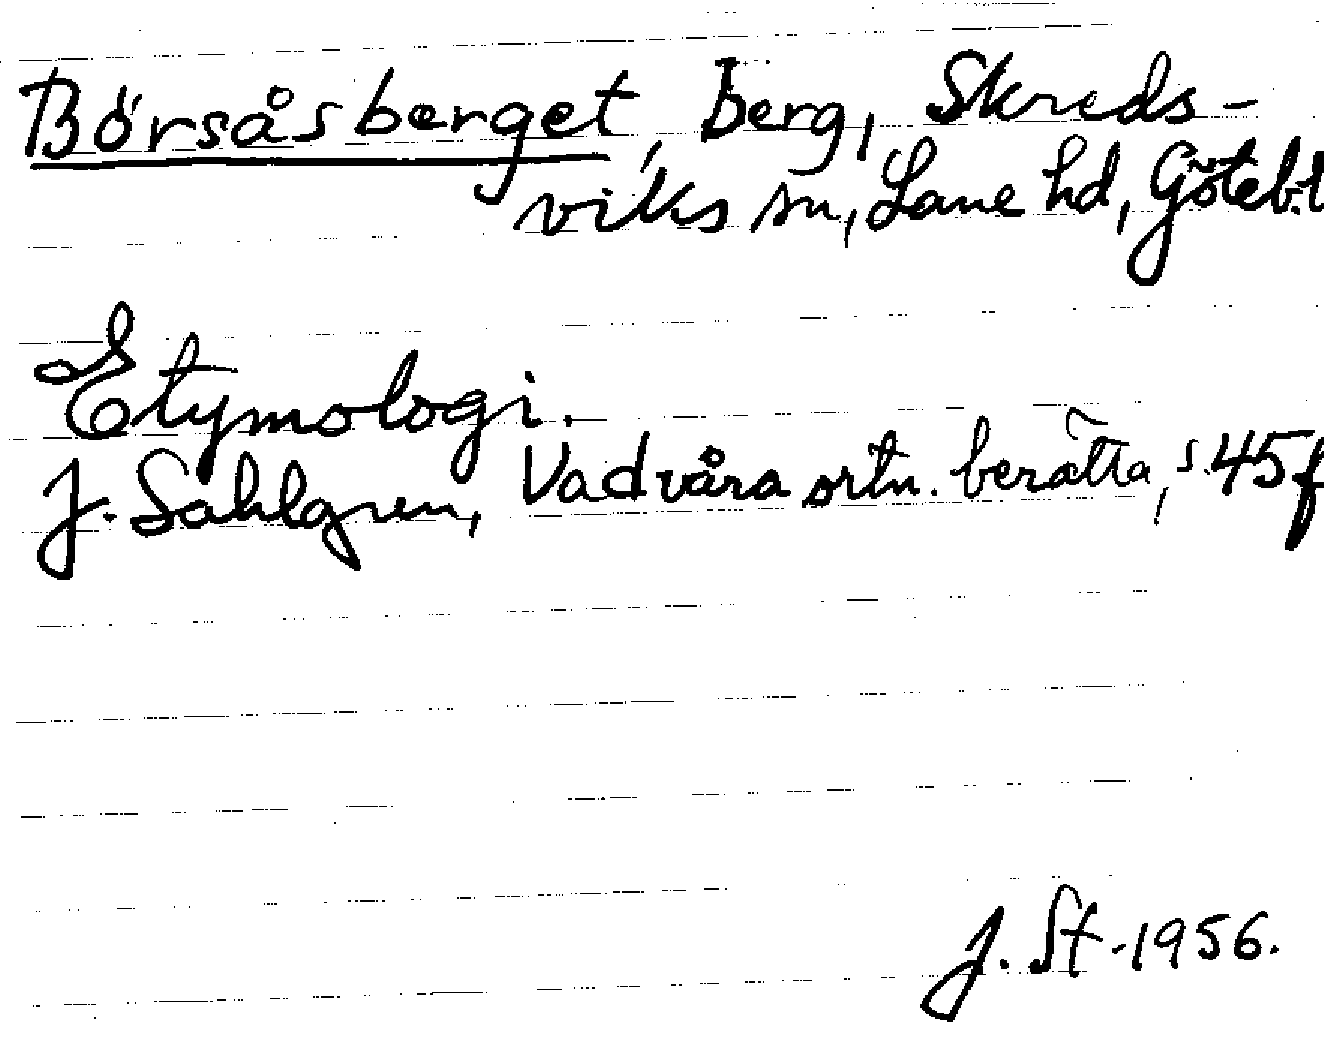 Börsåsberget, berg, Skreds-
viks sn, Lane hd, Göteb.l
Etymologi.
J. Sahlgren, Vad våra ortn. berätta, s. 45 f
J. St. 1956.